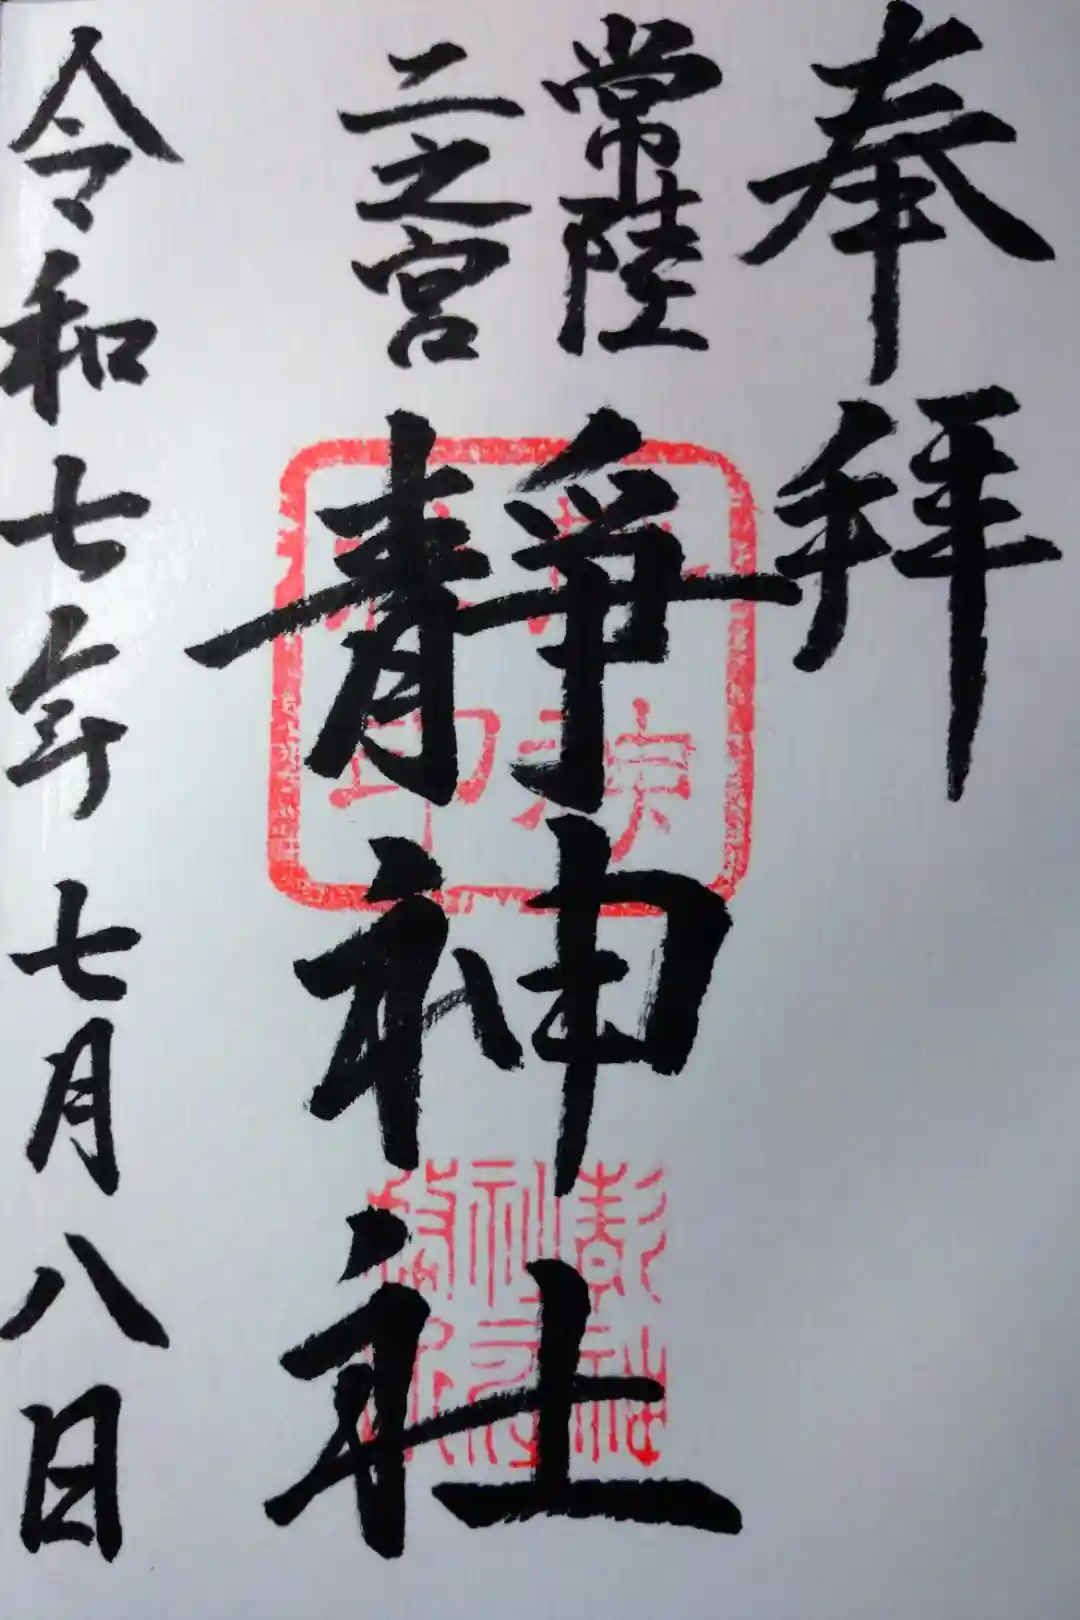 奉拝
常陸
二之宮
靜神社
令和七年七月八日